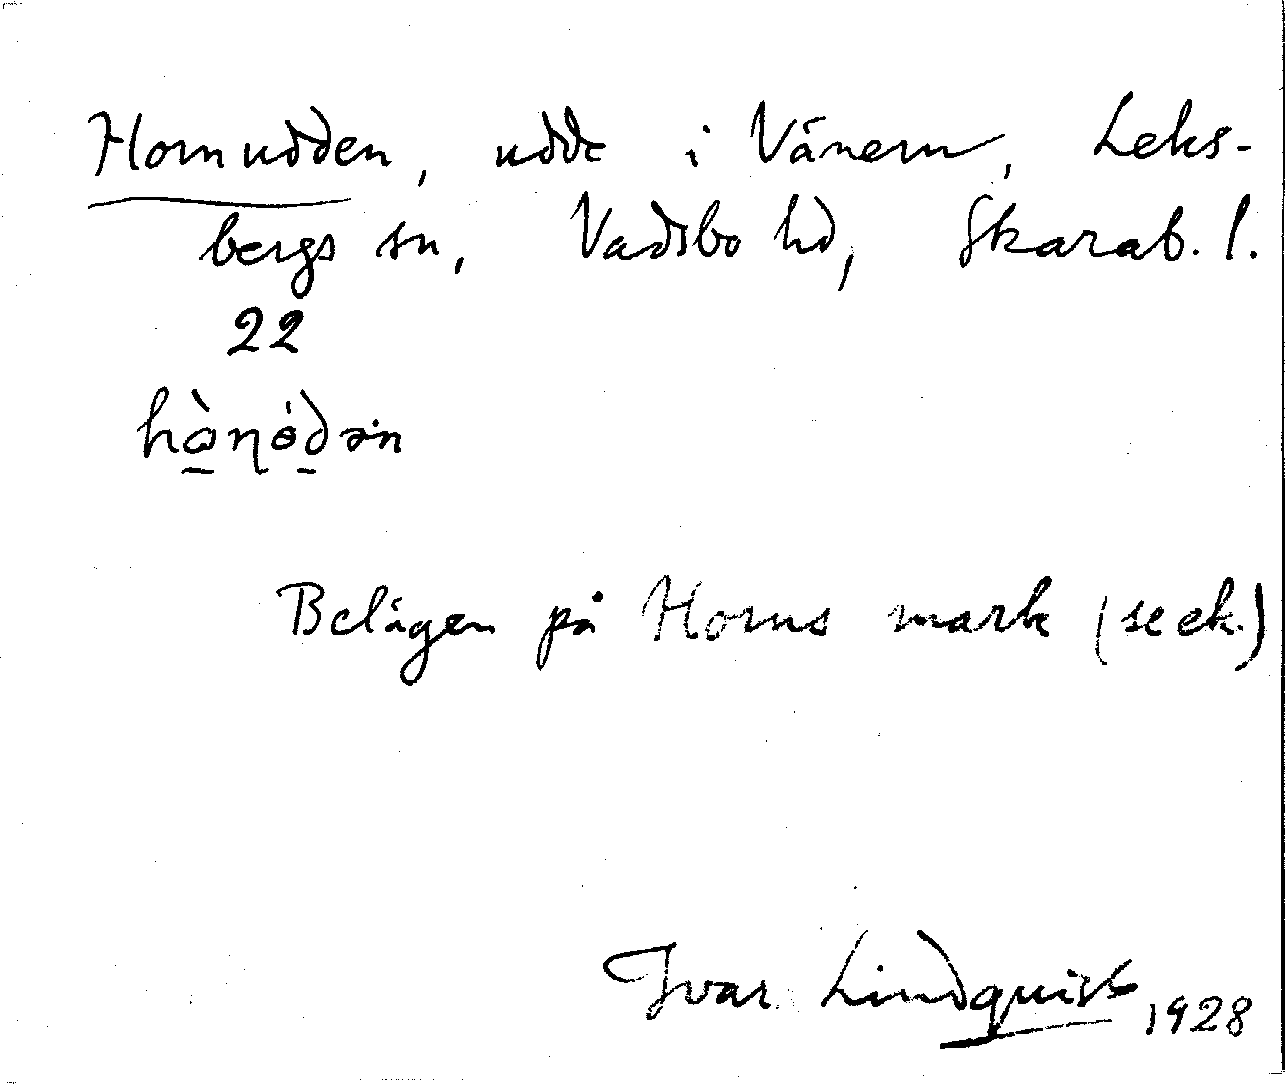 Hornudden, udde i Vänern, Leks-
bergs sn, Vadsbo hd, Skarab. l.
22
Belägen på Horns mark (se ek.)
Ivar Lindquist 1928